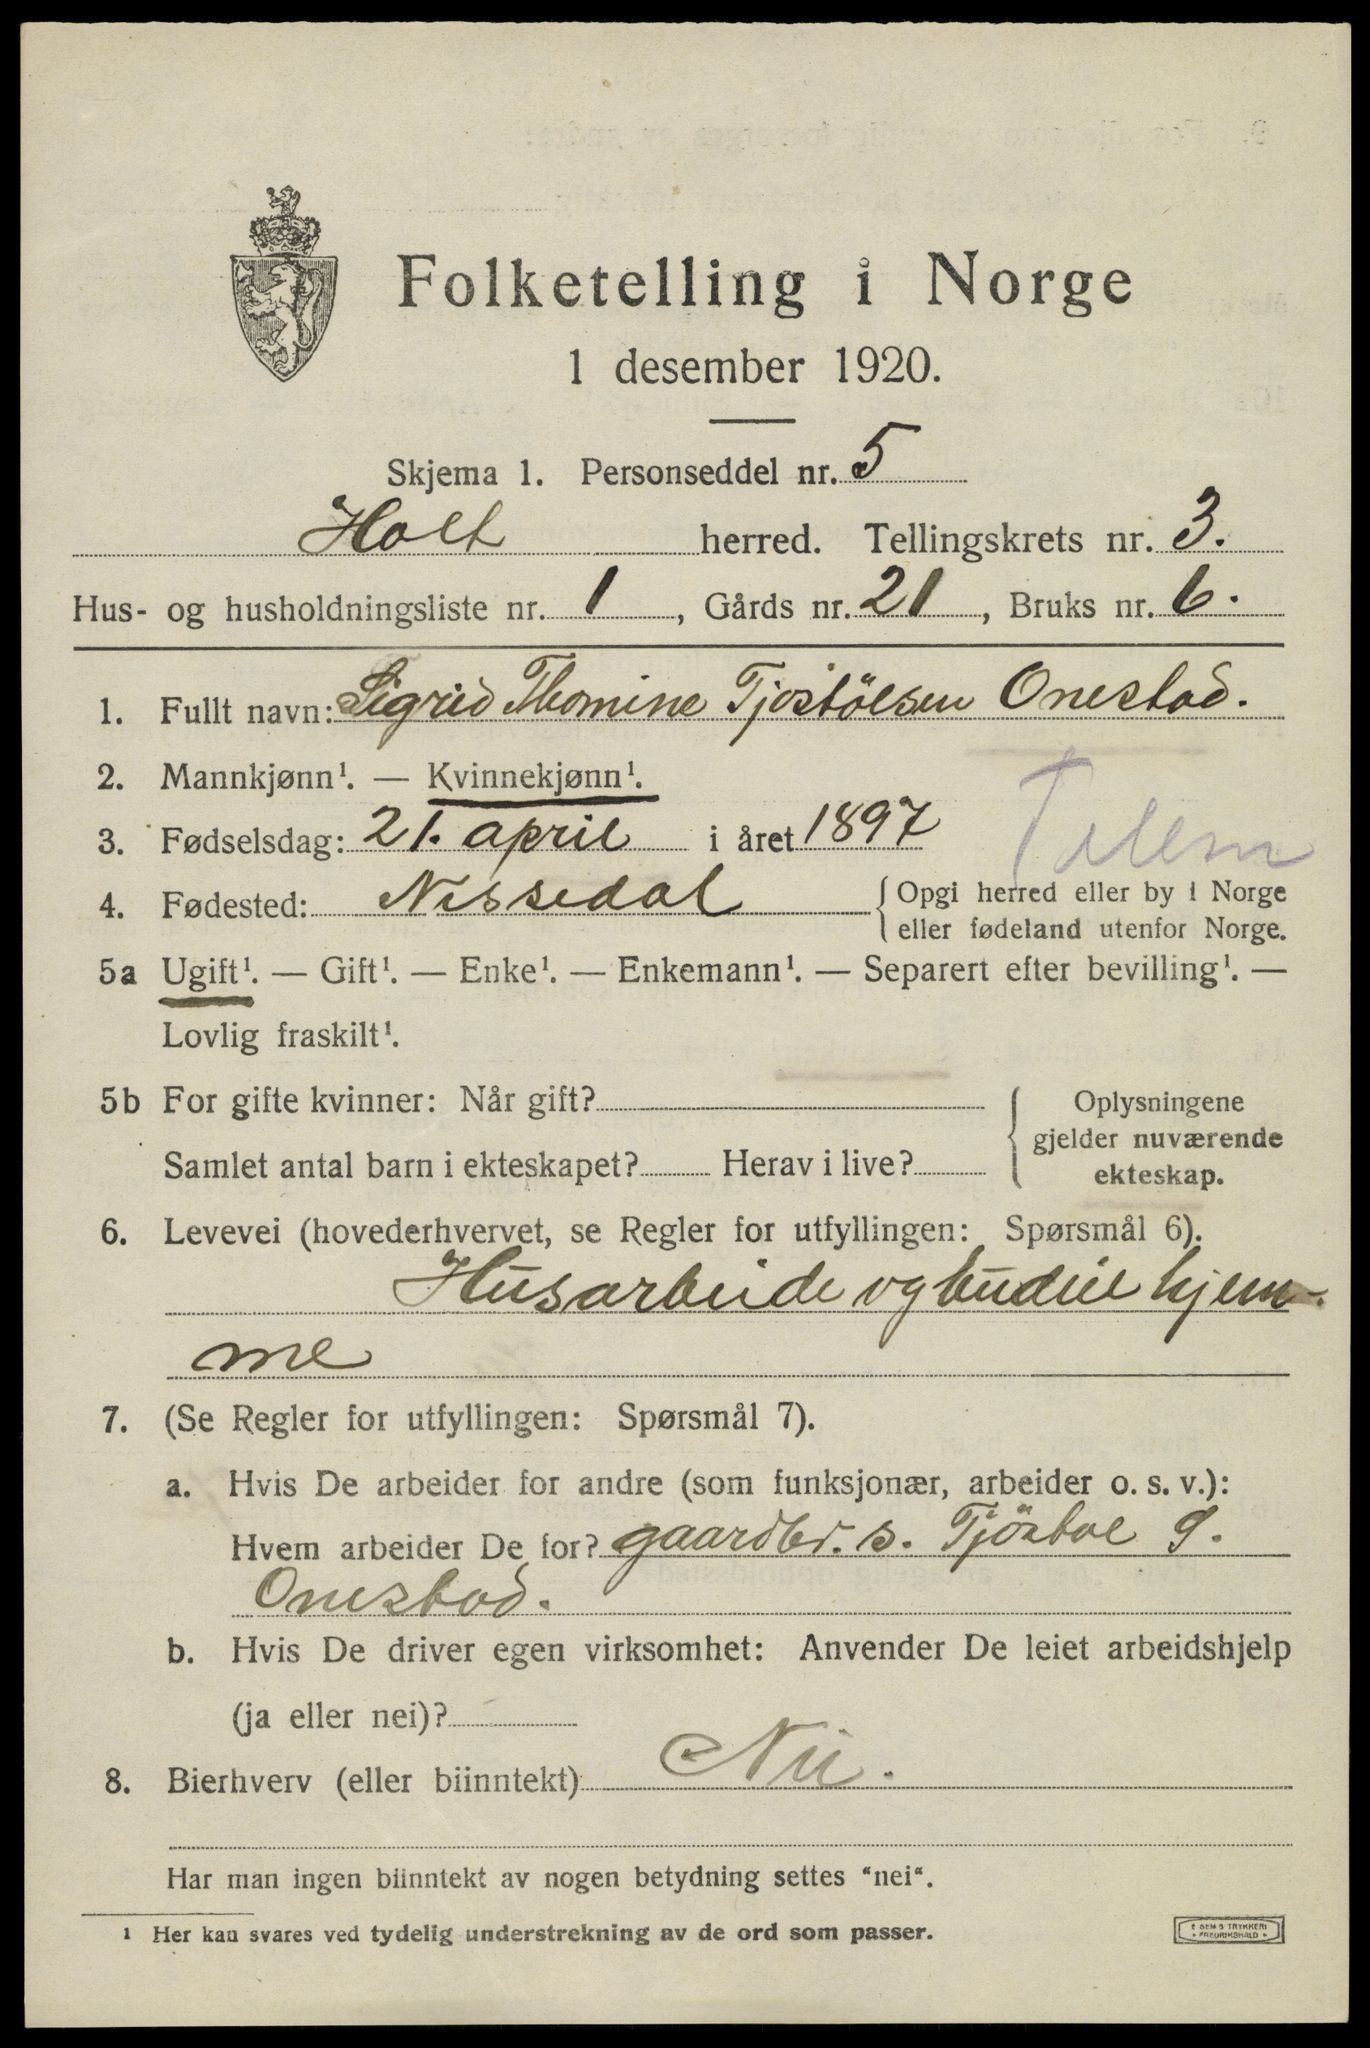 Folketelling i Norge
1 desember 1920.
Skjema 1. Personseddel nr. 5
Holt herred. Tellingskrets nr. 3.
Hus- og husholdningsliste nr. 1, Gårds nr. 21, Bruks nr. 6.
1. Fullt navn: Sigrid Thomine Tjostölsen Onestad.
2. Mannkjønn¹. — Kvinnekjønn¹.
3. Fødselsdag: 21. april i året 1897
Telem
4. Fødested: Nissedal { Opgi herred eller by i Norge
eller fødeland utenfor Norge.
5a Ugift¹. — Gift¹. — Enke¹. — Enkemann¹. — Separert efter bevilling¹. —
Lovlig fraskilt¹.
5b For gifte kvinner: Når gift? { Oplysningene
gjelder nuværende
Samlet antal barn i ekteskapet? Herav i live?
ekteskap.
6. Levevei (hovederhvervet, se Regler for utfyllingen: Spørsmål 6).
Husarbeide og budeie hjem-
me
7. (Se Regler for utfyllingen: Spørsmål 7).
a. Hvis De arbeider for andre (som funksjonær, arbeider o. s. v.):
Hvem arbeider De for? gaardbr. s. Tjöstol G.
Onestad.
b. Hvis De driver egen virksomhet: Anvender De leiet arbeidshjelp
(ja eller nei)?
8. Bierhverv (eller biinntekt) Nei.
Har man ingen biinntekt av nogen betydning settes "nei".
¹ Her kan svares ved tydelig understrekning av de ord som passer.
E SEM S TRYKKERI
FREDRIKSHALD